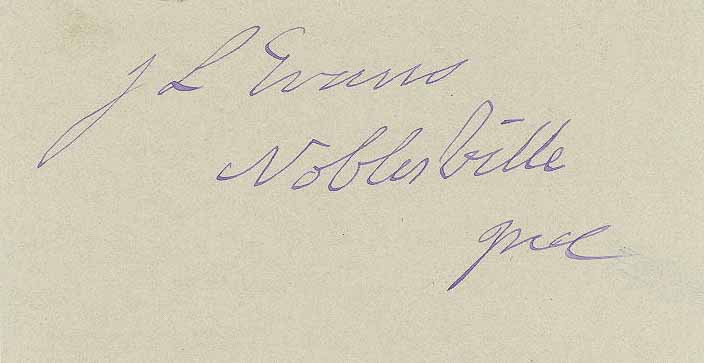 J L Evans
Noblesville
Ind